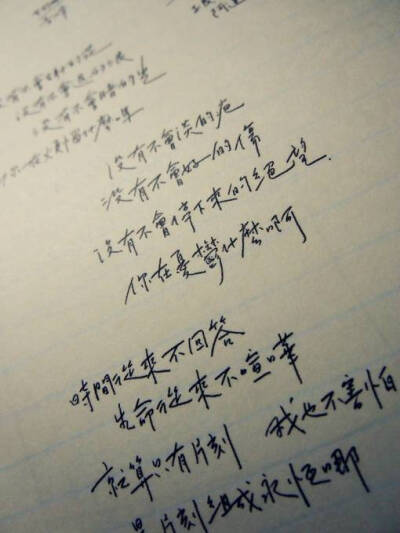 沒有不會
沒有不會
沒有不會
沒有不會淡的疤
沒有不會好的傷
沒有不會停下來的絕望
你在憂鬱什麼啊
時間從來不回答
生命從來不喧嘩
就算只有片刻 我也不害怕
是片刻組成永恆哪